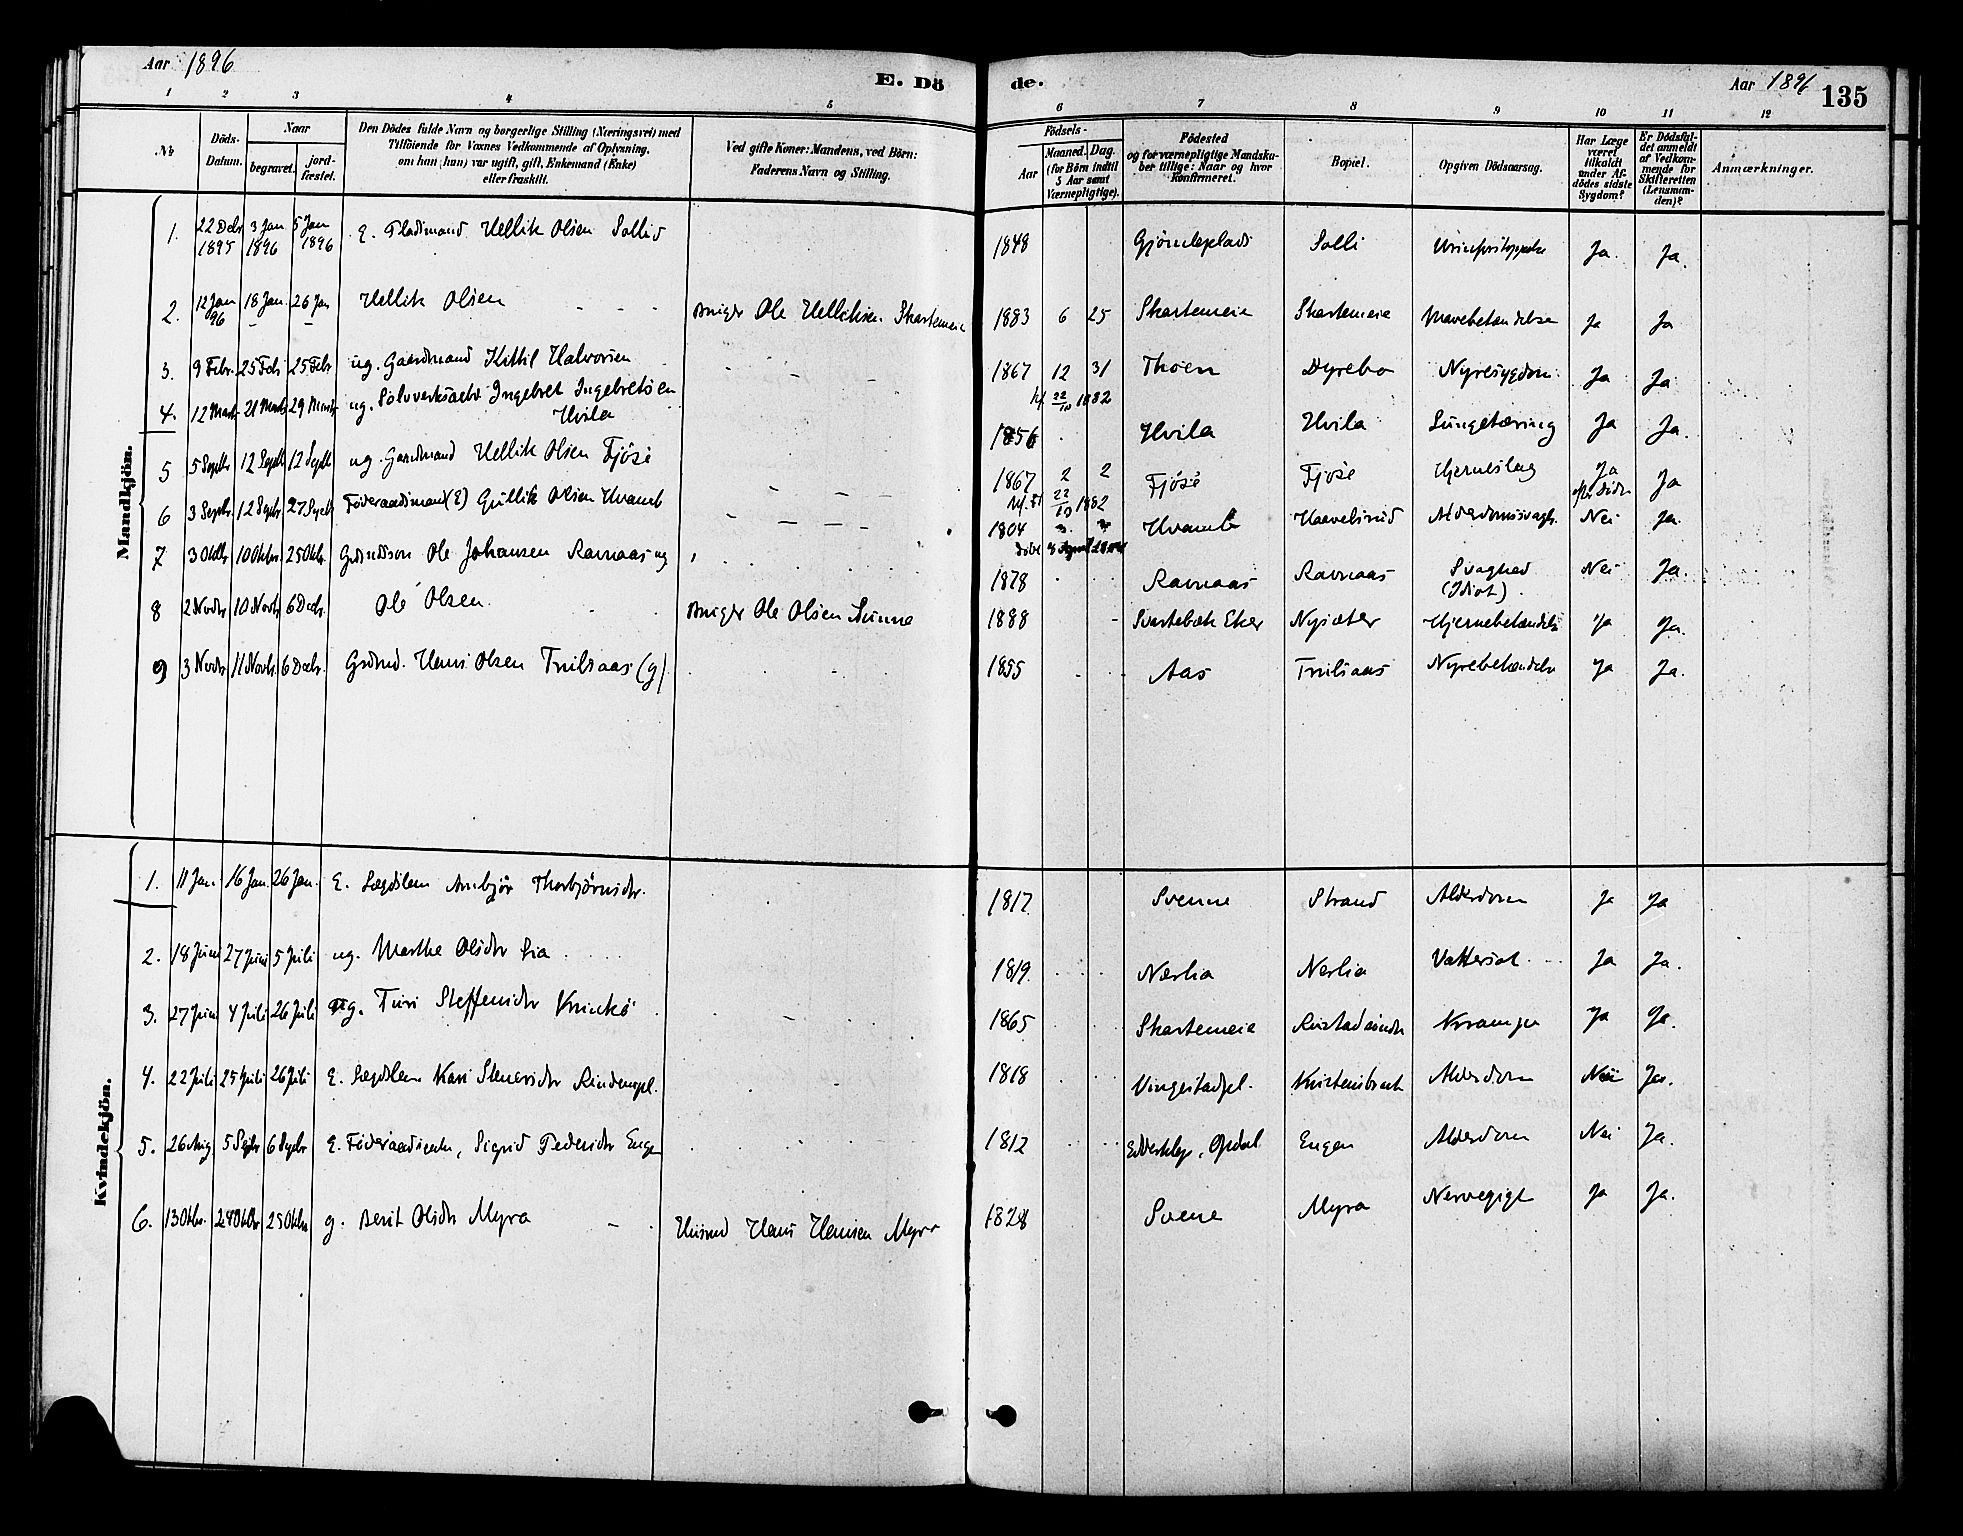 Aar 1896
E. Dö
de.
Aar 1896
135
1 2 3 4 5 6 7 8 9 10 11 12
No
Döds-Datum.
Naar
begravet.
jord-fæstet.
Den Dödes fulde Navn og borgerlige Stilling (Næringsvei) med
Tilföiende for Voxnes Vedkommende af Oplysning,
om han (hun) var ugift, gift, Enkemand (Enke)
eller fraskilt.
Ved gifte Koner: Mandens, ved Börn:
Faderens Navn og Stilling.
Födsels-
Aar
Maaned. Dag.
(for Börn indtil
5 Aar samt
Værnepligtige).
Födested
og for værnepligtige Mandska-
ber tillige: Naar og hvor
Konfirmeret.
Bopæl.
Opgiven Dödsaarsag.
Har Læge
været
tilkaldt
under Af-
dödes sidste
Sygdom?
Er Dödsfal-
det anmeldt
af Vedkom-
mende for
Skifteretten
(Lensman-
den)?
Anmærkninger.
Mandkjön.
1. 22 Decbr 1895 3 Jan 1896 5 Jan 1896 E. Pladsmand Hellik Olsen Sollid 1848 Gjörnesplads Solli Ja. Ja.
2. 12 Jan 96 18 Jan. 26 Jan Hellik Olsen Bruger Ole Helliksen Skartemeie 1883 6 25 Skartemeie Skartemeie Mavebetændelse Ja Ja
3. 9 Febr. 25 Feb 25 Febr ug. Gaardmand Kittil Halvorsen 1867 12 31 Thoen Dyrebo Nyresygdom Ja Ja
kf. 22/10 1882
4. 12 Marts 21 Marts 29 Marts ug. Sölvverksarb Ingebret Ingebretsen
Hvila 1856 Hvila Hvila Lungetæring Ja Ja.
5 5 Septbr 12 Septb 12 Septb ug. Gaardmand Hellik Olsen Fjösé 1867 2 2 Fjösé Fjösé Hjerneslag Ja Ja
22/10 1882
6 3 Septbr. 12 Septbr. 27 Septb Föderaadsmand (E) Gullik Olsen Hvamb 1804 Hvamb Alderdomssvagh. Nei Ja.
7 3 Oktbr 10 Oktbr 25 Oktbr. Gaardsön Ole Johansen Ravnaas ug 1878 Ravnaas Ravnaas Svaghed
(Idiot). Nei Ja.
8 2 Novbr 10 Novbr 6 Decbr. Ole Olsen Bruger Ole Olsen 1888 Svartebæk Eker Nysæter Hjernebetændelse Ja Ja.
9 3 Novbr 11 Novbr. 6 Decbr. Grdmd. Hans Olsen Trulsaas (g) 1855 Aas Trulsaas Nyrebetændelse Ja Ja.
Kvindekjön.
1. 11 Jan. 16 Jan. 26 Jan. E. Lægdslem Anbjör Thorbjörnsdtr. 1817 Svenne Strand Alderdom Ja Ja
2. 18 Juni 27 Juni 5 Juli ug. Marthe Olsdtr Lia 1819 Nerlia Nerlia Vattersot Ja Ja.
3. 27 Juni 4 Juli 26 Juli ug. Turi Steffensdtr 1865 Skartemeie Ja Ja.
4. 22 Juli 25 Juli 26 Juli E. Lægdslem Kari Stenersdtr 1818 Vingestadpl. Alderdom Nei Ja.
5. 26 Aug 5 Septbr 6 Septbr E. Föderaadsenke, Sigrid Pedersdtr Engen 1812 Opdal Engen Alderdom Nei Ja.
6. 13 Oktbr. 24 Oktbr 25 Oktbr g. Berit Olsdtr Myra Husmd Hans Hansen Myra 1828 Svene Myra Nervegigt Ja Ja.